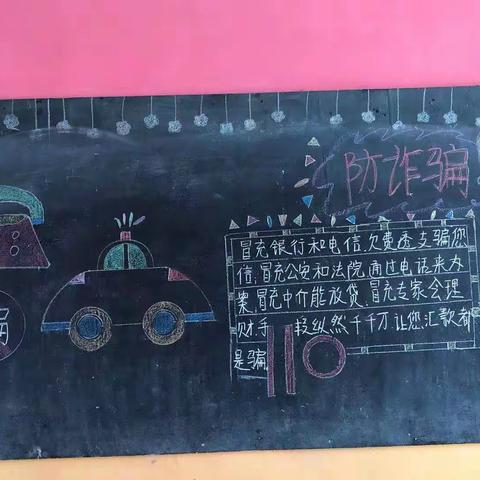 防诈骗
冒充银行和电信,欠费透支骗您
信,冒充公安和法院,通过电话来办
案,冒充中介能放贷,冒充专家会理
财,手段纵然千千万,让您汇款都
是骗
110
骗